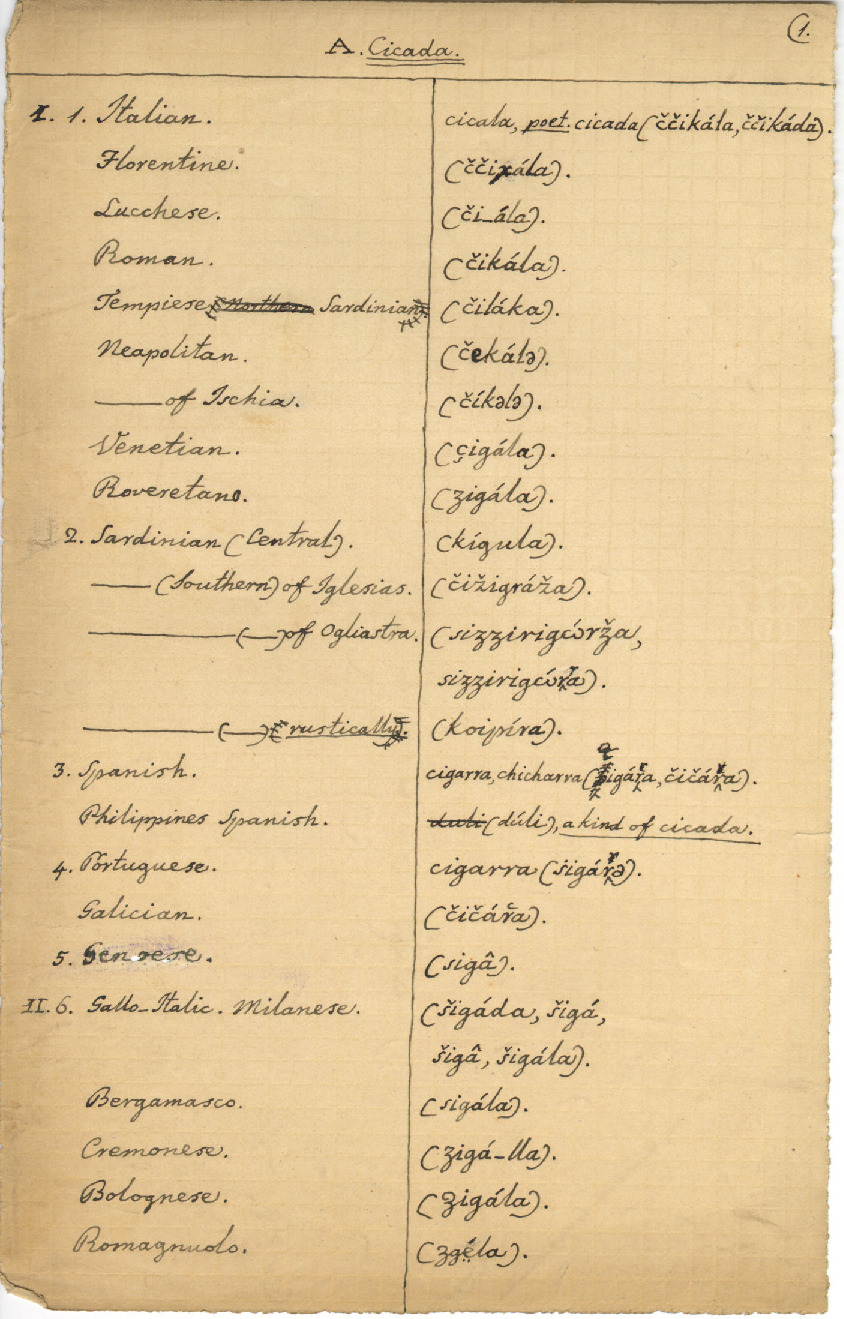 (1.
A. Cicada.
I. 1. Italian. cicala, poet. cicada (ččikála, ččikáda).
Florentine. (ččiχála).
Lucchese. (či_ála).
Roman. (čikála).
Tempiese (Northern Sardinian). (čiláka).
Neapolitan. (čekálə).
—— of Ischia. (číkələ).
Venetian. (çigála).
Roveretano. (zigála).
2. Sardinian (Central). (kígula).
—— (Southern) of Iglesias. (čižigráža).
—— (—) of Ogliastra. (sizzirigórža,
sizzirigóřa).
—— (—) (rustically). (koipíra).
3. Spanish. cigarra, chicharra (igářa, čičářa).
Philippines Spanish. duli (dúli), a kind of cicada.
4. Portuguese. cigarra (sigářə).
Galician. (čičářa).
5. Genoese. (sigâ).
II. 6. Gallo-Italic. Milanese. (šigáda, šigá,
šigâ, šigála).
Bergamasco. (sigála).
Cremonese. (zigá-lla).
Bolognese. (zigála).
Romagnuolo. (zgéla).